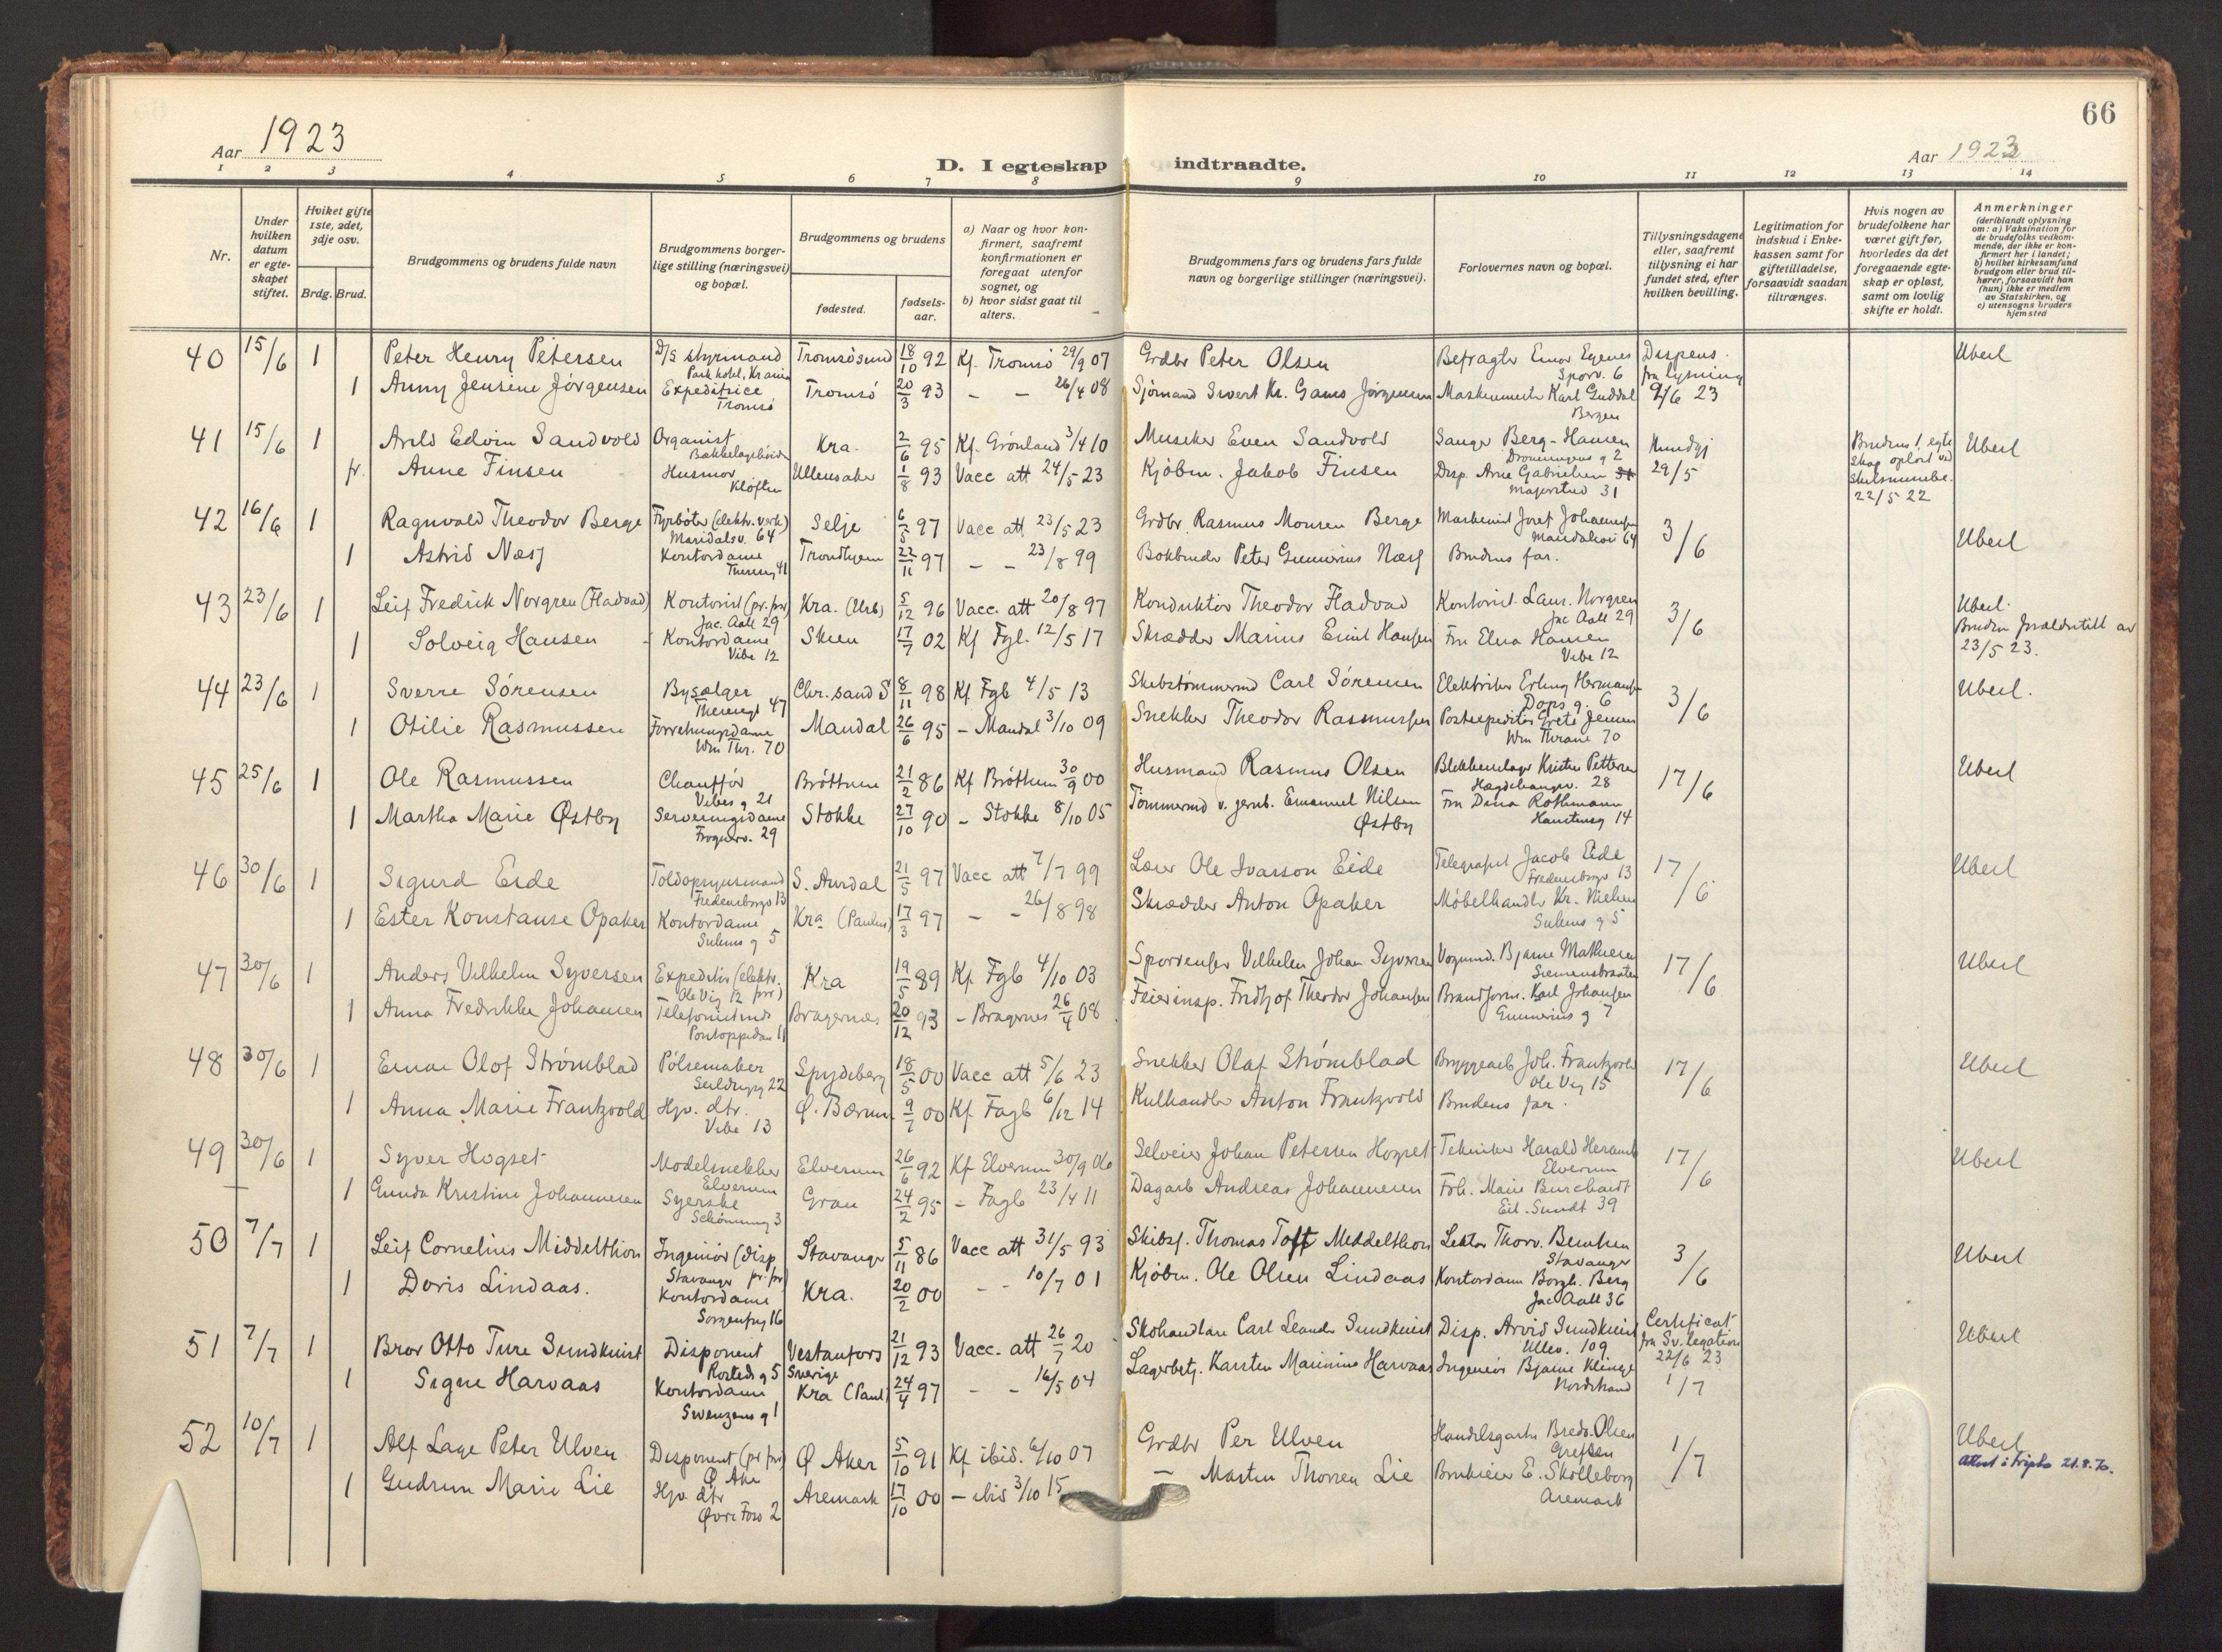 66
Aar 1923
D. I egteskap indtraadte.
Aar 1923
1 2 3 4 5 6 7 8 9 10 11 12 13 14
Nr.
Under hvilken datum er egteskapet stiftet.
Hvilket gifte 1ste, 2det, 3dje osv.
Brdg. Brud.
Brudgommens og brudens fulde navn
Brudgommens borgerlige stilling (næringsvei) og bopæl.
Brudgommens og brudens
fødested.
fødselsaar.
a) Naar og hvor konfirmert, saafremt konfirmationen er foregaat utenfor sognet, og
b) hvor sidst gaat til alters.
Brudgommens fars og brudens fars fulde navn og borgerlige stillinger (næringsvei).
Forlovernes navn og bopæl.
Tillysningsdagene eller, saafremt tillysning ei har fundet sted, efter hvilken bevilling.
Legitimation for indskud i Enkekassen samt for giftetilladelse, forsaavidt saadan tiltrænges.
Hvis nogen av brudefolkene har været gift før, hvorledes da det foregaaende egteskap er opløst, samt om lovlig skifte er holdt.
Anmerkninger
(deriblandt oplysning om: a) Vaksination for de brudefolks vedkommende, der ikke er konfirmert her i landet;
b) hvilket kirkesamfund brudgom eller brud tilhører, forsaavidt han (hun) ikke er medlem av Statskirken, og
c) utensogns bruders hjemsted
40 15/6 1 Peter Henry Petersen D/S styrmand Tromsøsund 18/10 92 Kf. Tromsø 29/9 07 Grdbr Peter Olsen Befragter Einar Egenes Dispens. Uberl
Park hotel, Krania Sporv. 6 fra lysning
1 Anny Jensine Jørgensen Expeditrice Tromsø 20/3 93 – – 26/4 08 Sjømand Sivert Kr. Gams Jørgensen Maskinmester Karl Guddal 9/6 23
Tromsø Bergen
41 15/6 1 Arild Edvin Sandvold Organist Kra. 2/6 95 Kf. Grønland 3/4 10 Musiker Even Sandvold Sanger Berg-Hansen Brudens 1. egteskap opløst ved Uberl
Bækkelagshøiden Dronningens g 2
fr. Anne Finsen Husmor Ullensaker 1/8 93 Vacc att 24/5 23 Kjøbm. Jakob Finsen Disp. Arne Gabrielsen 29/5
Kløften Majorstud 31 22/5 22
42 16/6 1 Ragnvald Theodor Berge Fyrbøter (elektr. verk) Selje 6/5 97 Vacc att 23/5 23 Grdbr. Rasmus Monsen Berge Maskinist Josef Johannesen 3/6 Uberl
Maridalsv. 64 Maridalsvei 64
1 Astrid Næss Kontordame Trondhjem 22/11 97 – – 23/8 99 Bokbinder Peter Gunerius Næss Brudens far.
Thereseg 41
43 23/6 1 Leif Fredrik Norgren (Fladvad) Kontorist (pr. for) Kra. (Urb) 5/12 96 Vacc. att 20/8 97 Konduktør Theodor Fladvad Kontorist Laur. Norgren 3/6 Uberl.
Jac. Aall 29 Jac Aall 29
1 Solveig Hansen Kontordame Skien 17/7 02 Kf Fgb. 12/5 17 Skrædder Marius Emil Hansen Fru Elna Hansen 23/5 23.
Vibe 12 Vibe 12
44 23/6 1 Sverre Sørensen Bysælger Chr.sand S 8/11 98 Kf Fgb 4/5 13 Skibstømmermd Carl Sørensen Elektriker Erling Hermansen 3/6 Uberl.
Theresegt 47 Dops g. 6
1 Otilie Rasmussen Forretningsdame Mandal 26/6 95 – Mandal 3/10 09 Snekker Theodor Rasmussen Postexpeditør Grete Jensen
Wm Thr. 70 Wm Thrane 70
45 25/6 1 Ole Rasmussen Chauffør Brøttum 21/2 86 Kf Brøttum 30/9 00 Husmand Rasmus Olsen Blikkenslager Kristen Pettersen 17/6 Uberl
Vibes g 21 Hægdehaugsv. 28
1 Martha Marie Østby Serveringsdame Stokke 27/10 90 – Stokke 8/10 05 Tømmermd v. jernb. Emanuel Nilsen Østby Fru Dina Rothmann
Frognerv. 29 Hanstensg 14
46 30/6 1 Sigurd Eide Toldopsynsmand S. Aurdal 21/5 97 Vacc att 7/7 99 Lærer Ole Ivarson Eide Telegrafist Jacob Eide 17/6 Uberl
Fredensborgv 13 Fredensborgv 13
1 Ester Konstanse Opaker Kontordame Kra (Paulus) 17/3 97 – – 26/8 98 Skrædder Anton Opaker Møbelhandler Kr. Nielsen
Sulems g 5 Sulems g 5
47 30/6 1 Anders Vilhelm Syversen Expeditør (elektr. Kra 19/5 89 Kf Fgb 4/10 03 Sporvensfor Vilhelm Johan Syversen Vognmd. Bjarne Mathiesen 17/6 Uberl
Ole Vig 12 Siemensbraaten
1 Anna Fredrikke Johansen Telefonistinde Bragernæs 20/12 93 – Bragernes 26/4 08 Feierinsp. Fridtjof Theodor Johansen Brandform. Karl Johansen
Pontoppidan 11 Gunnerius g 7
48 30/6 1 Einar Olof Strømblad Pølsemaker Spydeberg 18/5 00 Vacc att 5/6 23 Snekker Olaf Strømblad Bryggearb Joh. Frantzvold 17/6 Uberl
Seilduksg 22 Ole Vig 15
1 Anna Marie Frantzvold Hjv. dtr. Ø. Bærum 9/7 00 Kf Fagb 6/12 14 Kulhandler Anton Frantzvold Brudens far.
Vibe 13
49 30/6 1 Syver Hogset Modelsnekker Elverum 26/6 92 Kf Elverum 30/9 06 Selveier Johan Petersen Hogset Tekniker Harald Heramb 17/6 Uberl
Elverum Elverum
1 Gunda Kristine Johannesen Syerske Gran 24/2 95 – Fagb 23/4 11 Dagarb Andreas Johannesen Frk. Marie Burchardt
Schønning 3 Eil. Sundt 39
50 7/7 1 Leif Cornelius Middelthon Ingeniør (disp Stavanger 5/11 86 Vacc att 31/5 93 Skibsf. Thomas Toft Meddelthon Lektor Thorv. 3/6 Uberl
Stavanger pr. for) Stavanger
1 Doris Lindaas. Kontordame Kra. 20/2 00 – – 10/7 01 Kjøbm. Ole Olsen Lindaas Kontordame Borgh. Berg
Sorgenfrig 16 Jac Aall 36
51 7/7 1 Bror Otto Ture Sundkvist Disponent Vestanfors Sverige 21/12 93 Vacc. att 26/7 20 Skohandlare Carl Leander Sundkvist Disp. Arvid Sundkvist Certificat fra Sv. legation 22/6 23 Uberl
Rosteds g 5 Ullev. 109
1 Signe Harvaas Kontordame Kra (Paul) 24/4 97 – – 16/5 04 Lagerbetj. Karsten Marinius Harvaas Ingeniør Bjarne Klinge 1/7
Swensens g 1 Nordstrand
52 10/7 1 Alf Lage Peter Ulven Disponent (pr for) Ø Aker 5/10 91 Kf ibid. 6/10 07 Grdbr Per Ulven Handelsgartn Bredo Olsen 1/7 Uberl
Ø Aker Grefsen Attest i 21.8.70.
1 Gudrun Marie Lie Hjv. dtr Aremark 17/10 00 – ibid 3/10 15 – Martin Thoresen Lie Brukseier E. Skolleborg
Øvre Foss 2 Aremark